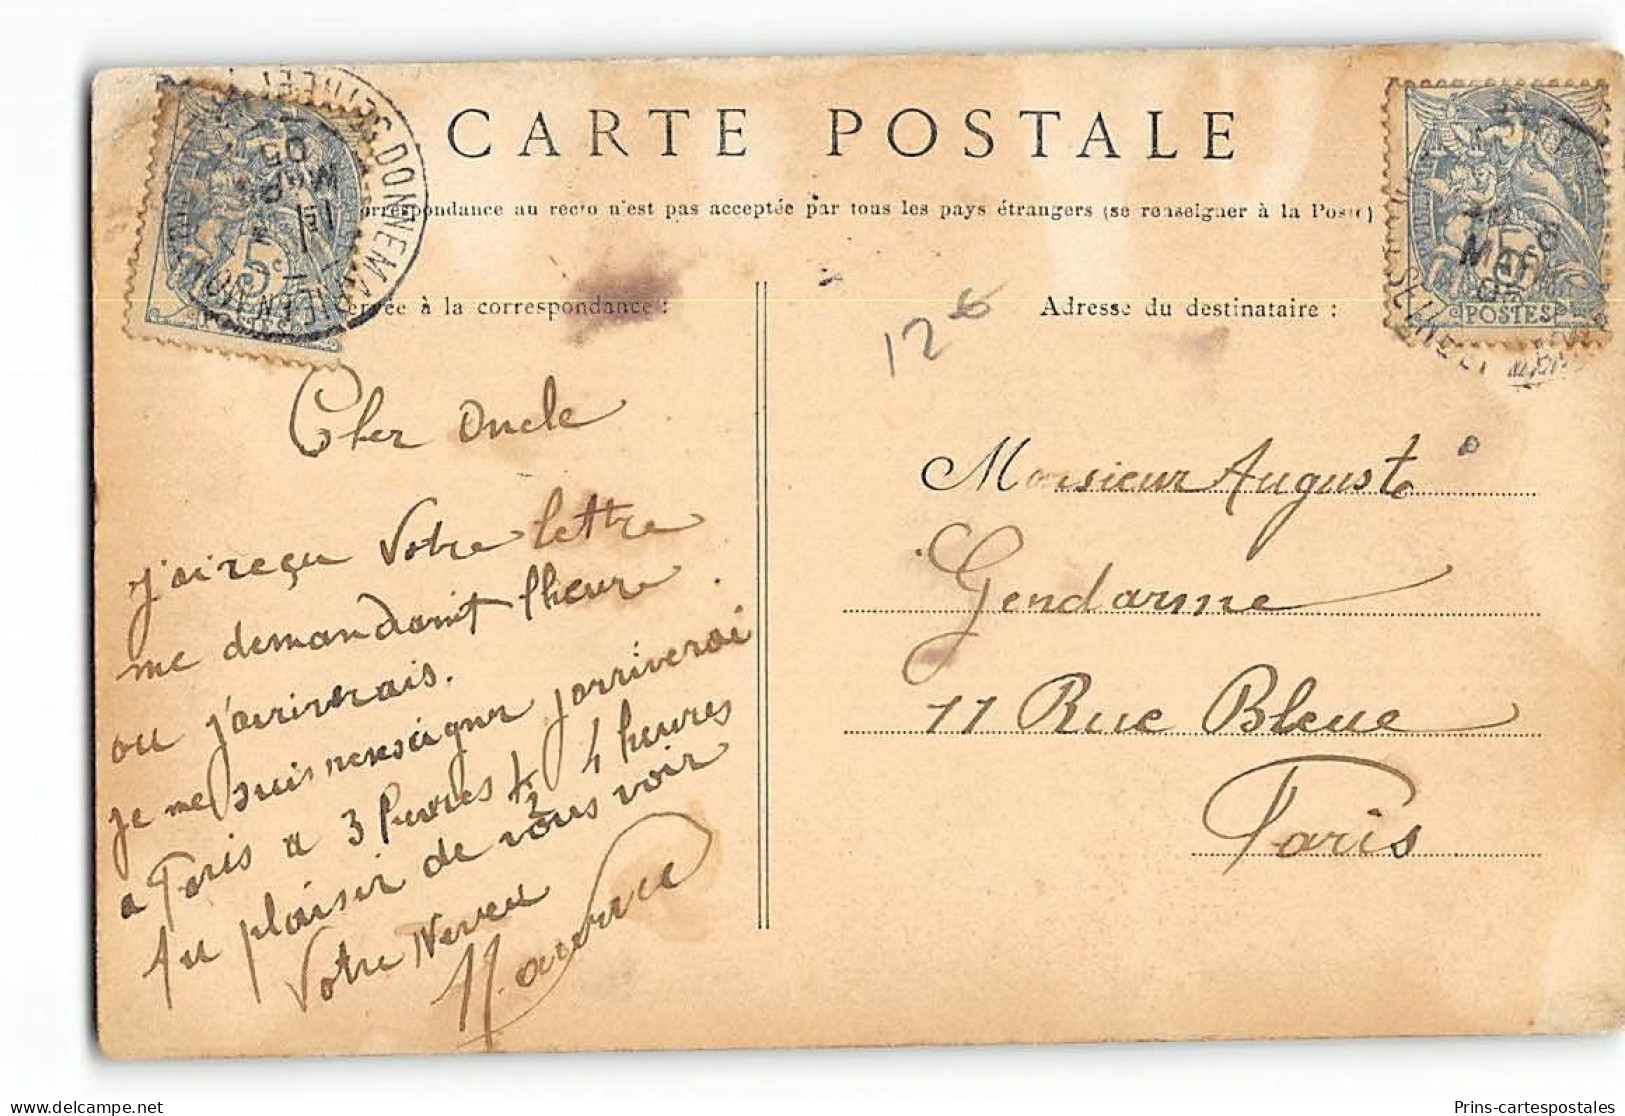 CARTE POSTALE
orrespondance au recto n'est pas acceptée par tous les pays étrangers (se renseigner à la Poste)
ervée à la correspondance :
Adresse du destinataire :
12
5c
POSTES
5
POSTES
Cher Oncle
j'ai reçu Votre lettre
me demandant l'heure
ou j'arriverais.
je me suis renseigner j'arriverai
a Paris a 3 heures ½ 4 heures
Au plaisir de vous voir
Votre Neveu
Monsieur Auguste
Gendarme
11 Rue Bleue
Paris
Prins-cartespostales